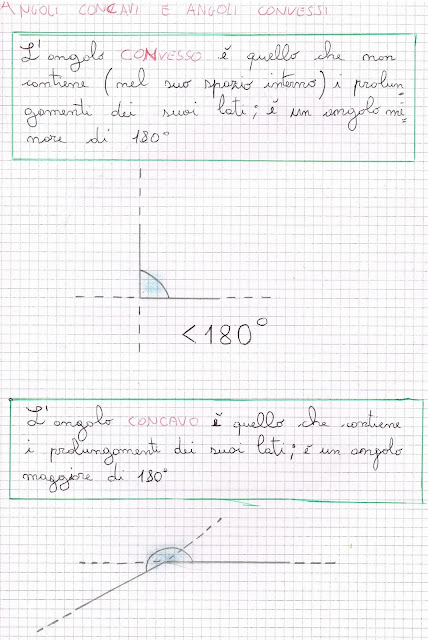 ANGOLI CONCAVI E ANGOLI CONVESSI
L'angolo CONVESSO è quello che non
contiene (nel suo spazio interno) i prolun-
gamenti dei suoi lati; è un angolo mi=
nore di 180°
<180°
L'angolo CONCAVO è quello che contiene
i prolungamenti dei suoi lati; è un angolo
maggiore di 180°